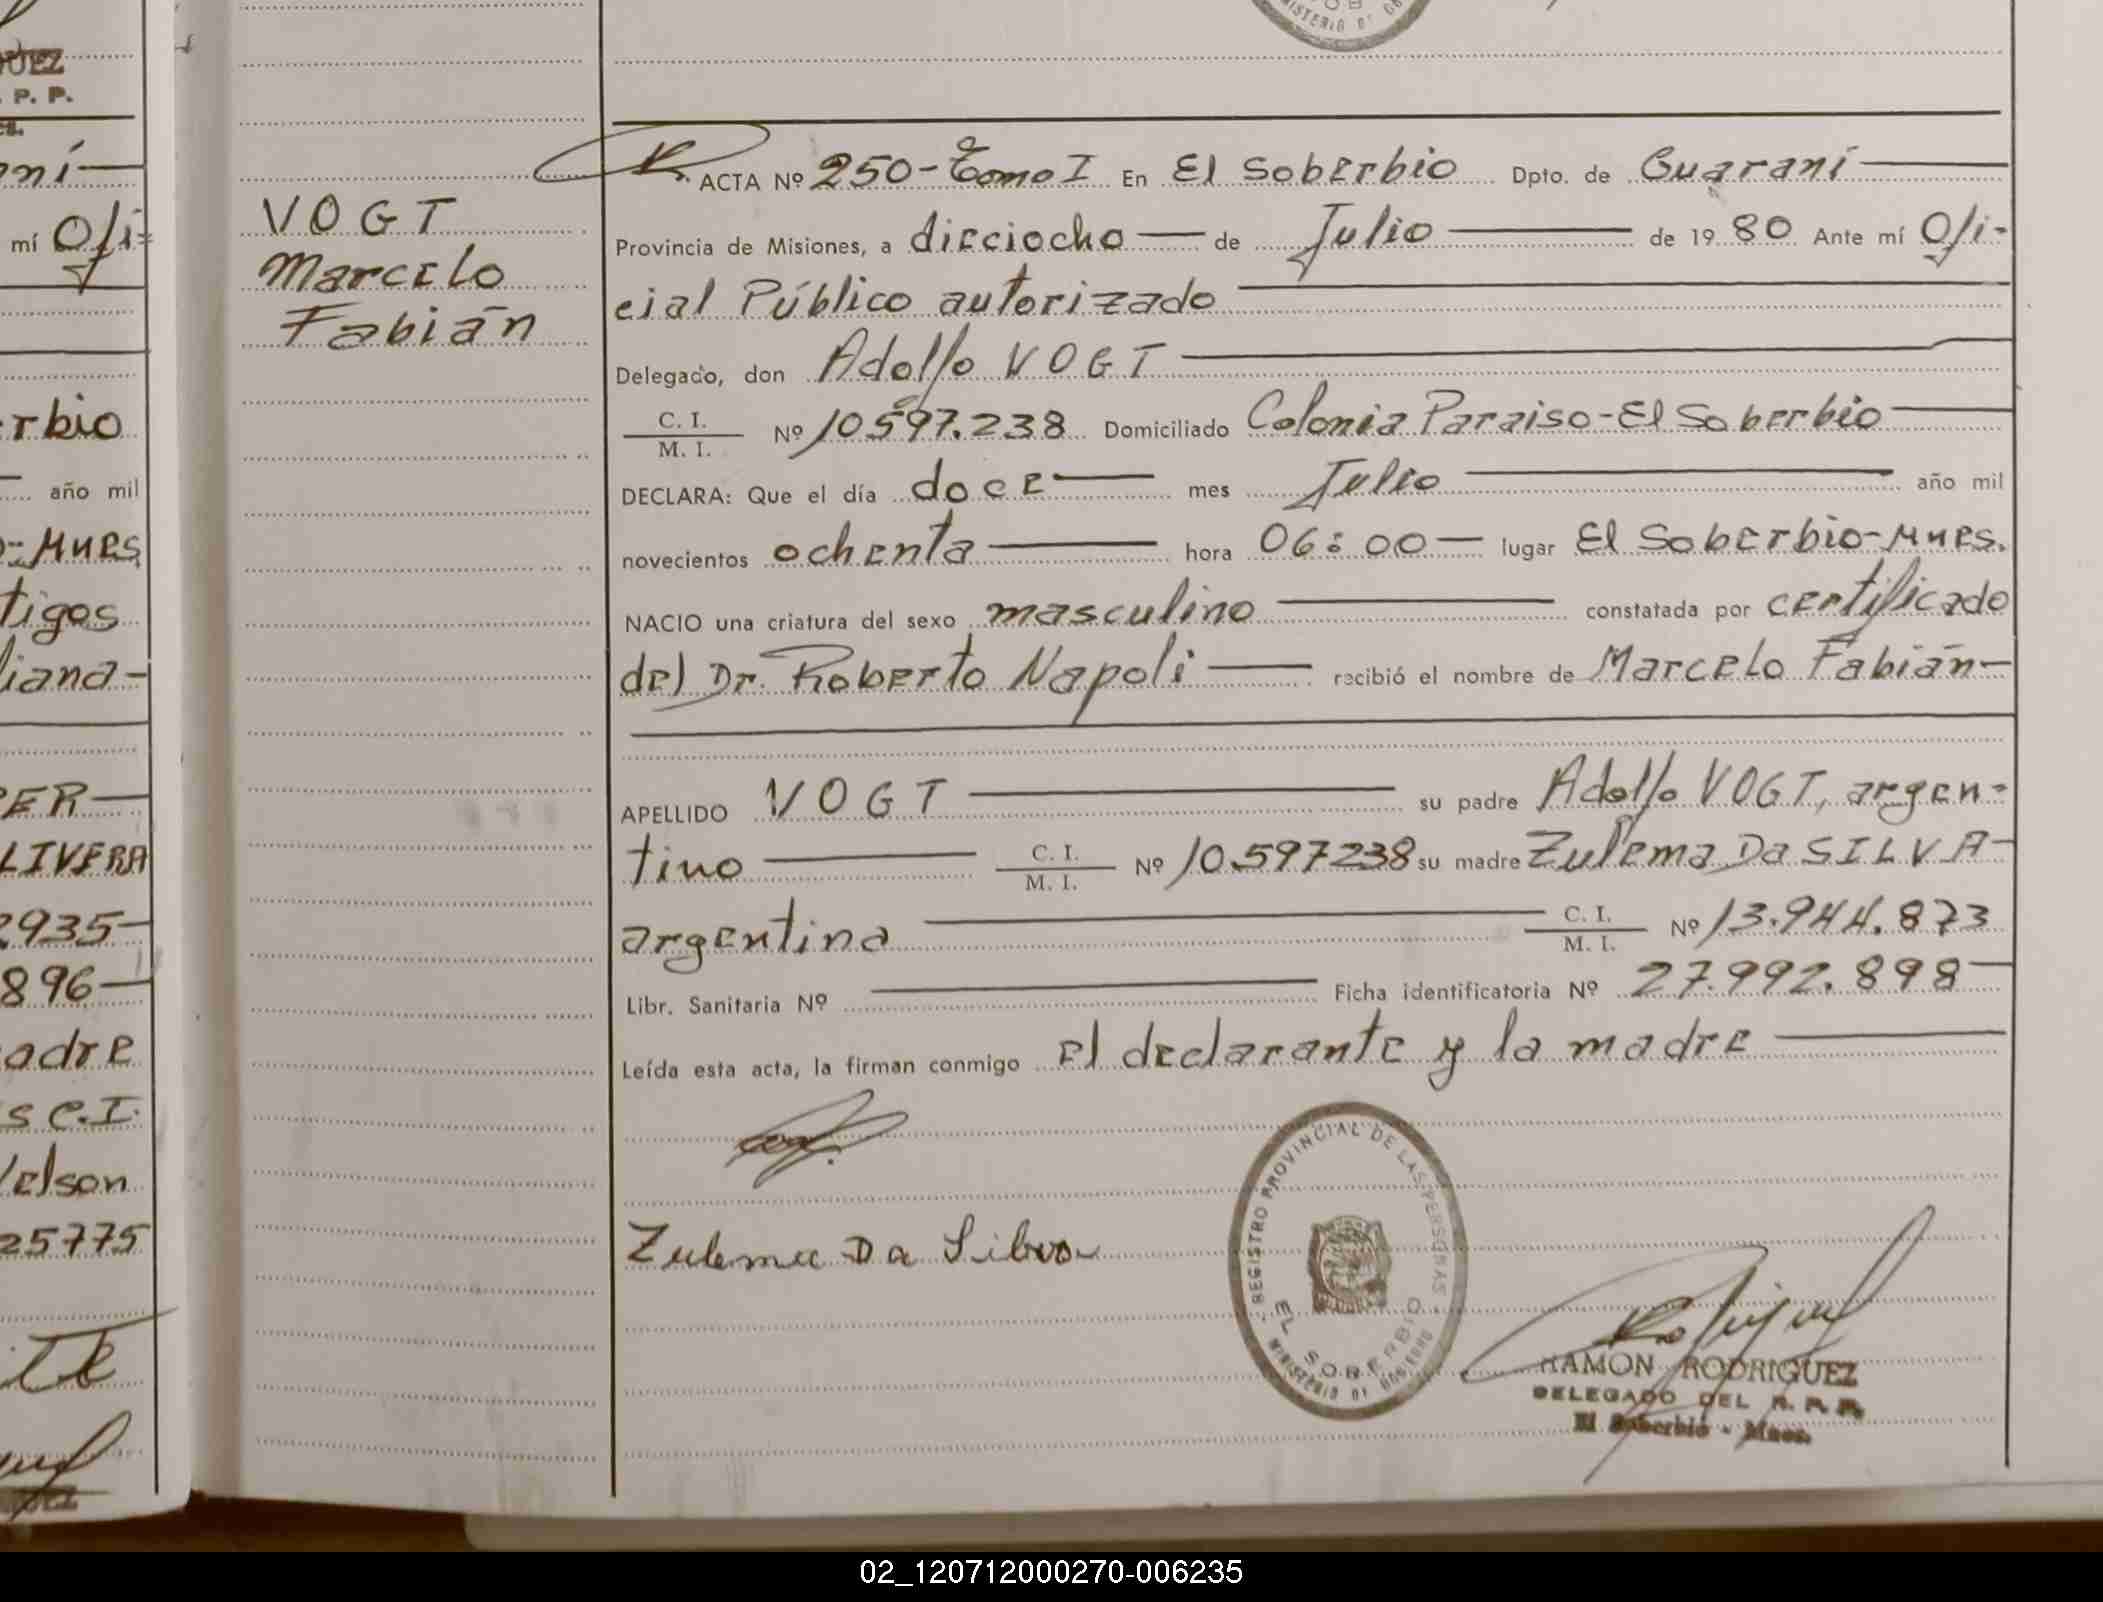 UEZ
. P. P.
es.
ní
mí Ofi-
rbio
año mil
o-Mnes
tigos
liana-
PER
LIVERA
2935
896
adre
s C.I.
elson
25775
VOGT
Marcelo
Fabián
MINISTERIO DE GO
ACTA Nº 250-Tomo I En El Soberbio Dpto. de Guaraní
Provincia de Misiones, a dieciocho de Julio de 1980 Ante mí Ofi-
cial Público autorizado
Delegado, don Adolfo VOGT
C. I.
M. I. Nº 10.597.238 Domiciliado Colonia Paraiso-El Soberbio
DECLARA: Que el día doce mes Julio año mil
novecientos ochenta hora 06:00 lugar El Soberbio-Mnes.
NACIO una criatura del sexo masculino constatada por certificado
del Dr. Roberto Napoli recibió el nombre de Marcelo Fabián-
APELLIDO VOGT su padre Adolfo VOGT, argen-
tino C. I.
M. I. Nº 10.597238 su madre Zulema Da SILVA-
argentina C. I.
M. I. Nº 13.944.873
Libr. Sanitaria Nº Ficha identificatoria Nº 27.992.898
Leída esta acta, la firman conmigo el declarante y la madre
Zulema Da Silva
REGISTRO PROVINCIAL DE LAS PERSONAS
EL SOBERBIO
MINISTERIO DE GOBIERNO
RAMON RODRIGUEZ
DELEGADO DEL R. P. P.
El Soberbio - Mnes.
02_120712000270-006235